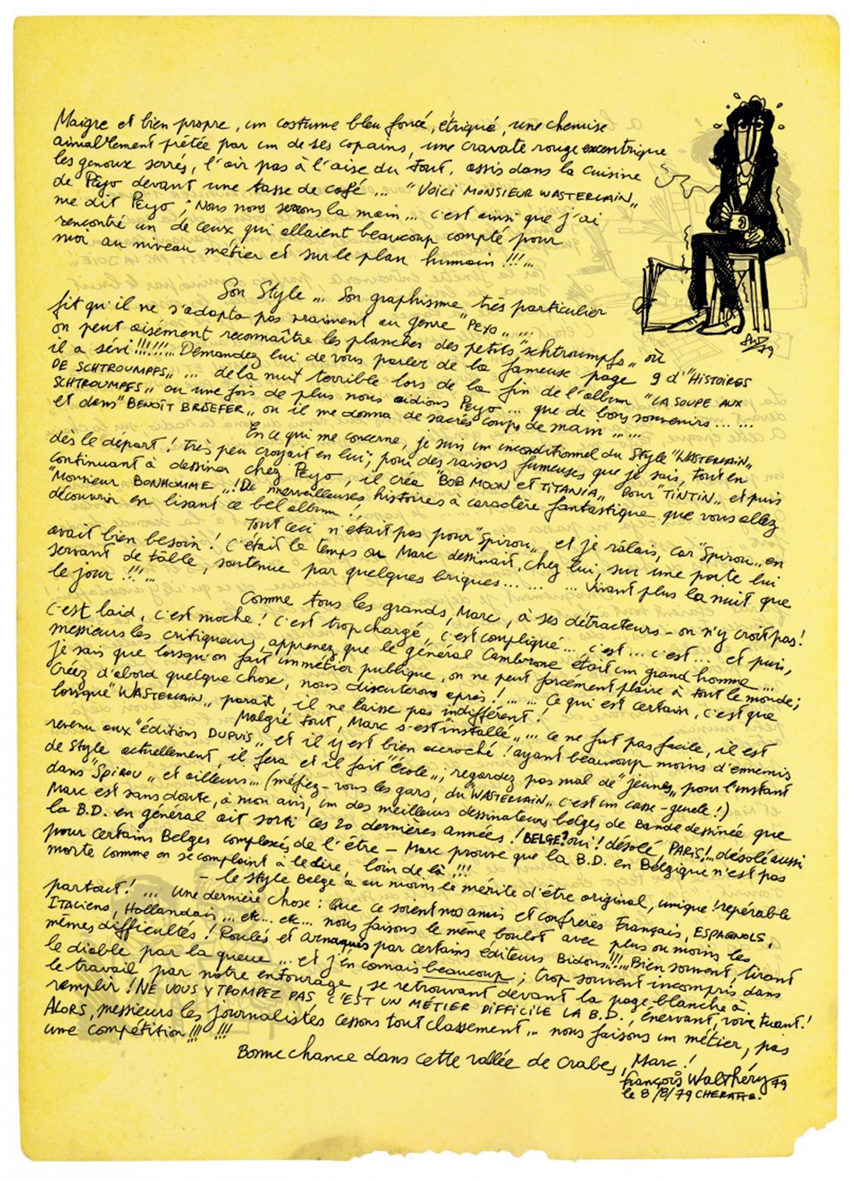 Maigre et bien propre, un costume bleu foncé, étriqué, une chemise
aimablement prêtée par un de ses copains, une cravate rouge excentrique
les genoux serrés, l'air pas à l'aise du tout, assis dans la cuisine
de Peyo devant une tasse de café ... "VOICI MONSIEUR WASTERLAIN„
me dit Peyo ; Nous nous serrons la main ... c'est ainsi que j'ai
rencontré un de ceux qui allaient beaucoup compté pour
moi au niveau métier et sur le plan humain !!! ...
Son Style ... Son graphisme très particulier
fit qu'il ne s'adapta pas vraiment au genre "PEYO„ ...
on peut aisément reconnaître les planches des petits "schtroumpfs„ où
il a sévi !!!!!! Demandez lui de vous parler de la fameuse page 9 d'"HISTOIRES
DE SCHTROUMPFS„ ... de la nuit terrible lors de la fin de l'album "LA SOUPE AUX
SCHTROUMPFS„ où une fois de plus nous aidions Peyo ... que de bons souvenirs ... ...
et dans "BENOÎT BRISEFER„ où il me donna de sacrés coups de main ... ...
En ce qui me concerne, je suis un inconditionnel du Style "WASTERLAIN„
dès le départ ! très peu croyait en lui ; pour des raisons fumeuses que je sais, tout en
continuant à dessiner chez Peyo, il créa "BOB MOON et TITANIA„ pour "TINTIN„ et puis
"Monsieur BONHOMME„ ! De merveilleuses histoires à caractère fantastique que vous allez
découvrir en lisant ce bel album !
Tout ceci n'était pas pour "Spirou„ et je râlais, car "Spirou„ en
avait bien besoin ! C'était le temps où Marc dessinait, chez lui, sur une porte lui
servant de table, soutenue par quelques briques ... ... ... Vivant plus la nuit que
le jour !!! ...
Comme tous les grands, Marc, à ses détracteurs - on n'y croit pas !
c'est laid, c'est moche ! C'est trop chargé, c'est compliqué ... c'est ... c'est ... et puis,
messieurs les critiqueurs, apprenez que le général Cambronne était un grand homme ...
je sais que lorsqu'on fait un métier publique, on ne peut forcément plaire à tout le monde ;
Créez d'abord quelque chose, nous discuterons après ! ... ... Ce qui est certain, c'est que
lorsque "WASTERLAIN„ paraît, il ne laisse pas indifférent !
Malgré tout, Marc s'est "installé„ ... Ce ne fut pas facile, il est
revenu aux "éditions DUPUIS„ et il y est bien accroché ! ayant beaucoup moins d'ennemis
de Style actuellement, il fera et il fait "École„ ; regardez pas mal de "jeunes„ pour l'instant
dans "SPIROU„ et ailleurs ... (méfiez-vous les gars, du "WASTERLAIN„ c'est un casse-gueule !)
Marc est sans doute, à mon avis, un des meilleurs dessinateurs belges de Bande dessinée que
la B.D. en général ait sorti ces 20 dernières années ! BELGE ? oui ! désolé PARIS ! ... désolé aussi
pour certains Belges complexés de l'être - Marc prouve que la B.D. en Belgique n'est pas
morte comme on se complaint à le dire, loin de là !!!
- le style Belge a au moins le mérite d'être original, unique ! repérable
partout ! ... Une dernière chose : Que ce soient nos amis et confrères Français, ESPAGNOLS,
Italiens, Hollandais, ... etc... etc... nous faisons le même boulot avec plus ou moins les
mêmes difficultés ! Roulés et arnaqués par certains éditeurs Bidons !!! ... Bien souvent, tirant
le diable par la queue ... et j'en connais beaucoup ; trop souvent incompris dans
le travail par notre entourage, se retrouvant devant la page blanche à
remplir ! NE VOUS Y TROMPEZ PAS, C'EST UN MÉTIER DIFFICILE LA B.D., énervant, voire tuant !
Alors, messieurs les journalistes cessons tout classement ... nous faisons un métier, pas
une compétition !!! !!!
Bonne chance dans cette vallée de crabes, Marc !
François Walthéry 79
le 8/8/79 CHERATTE.